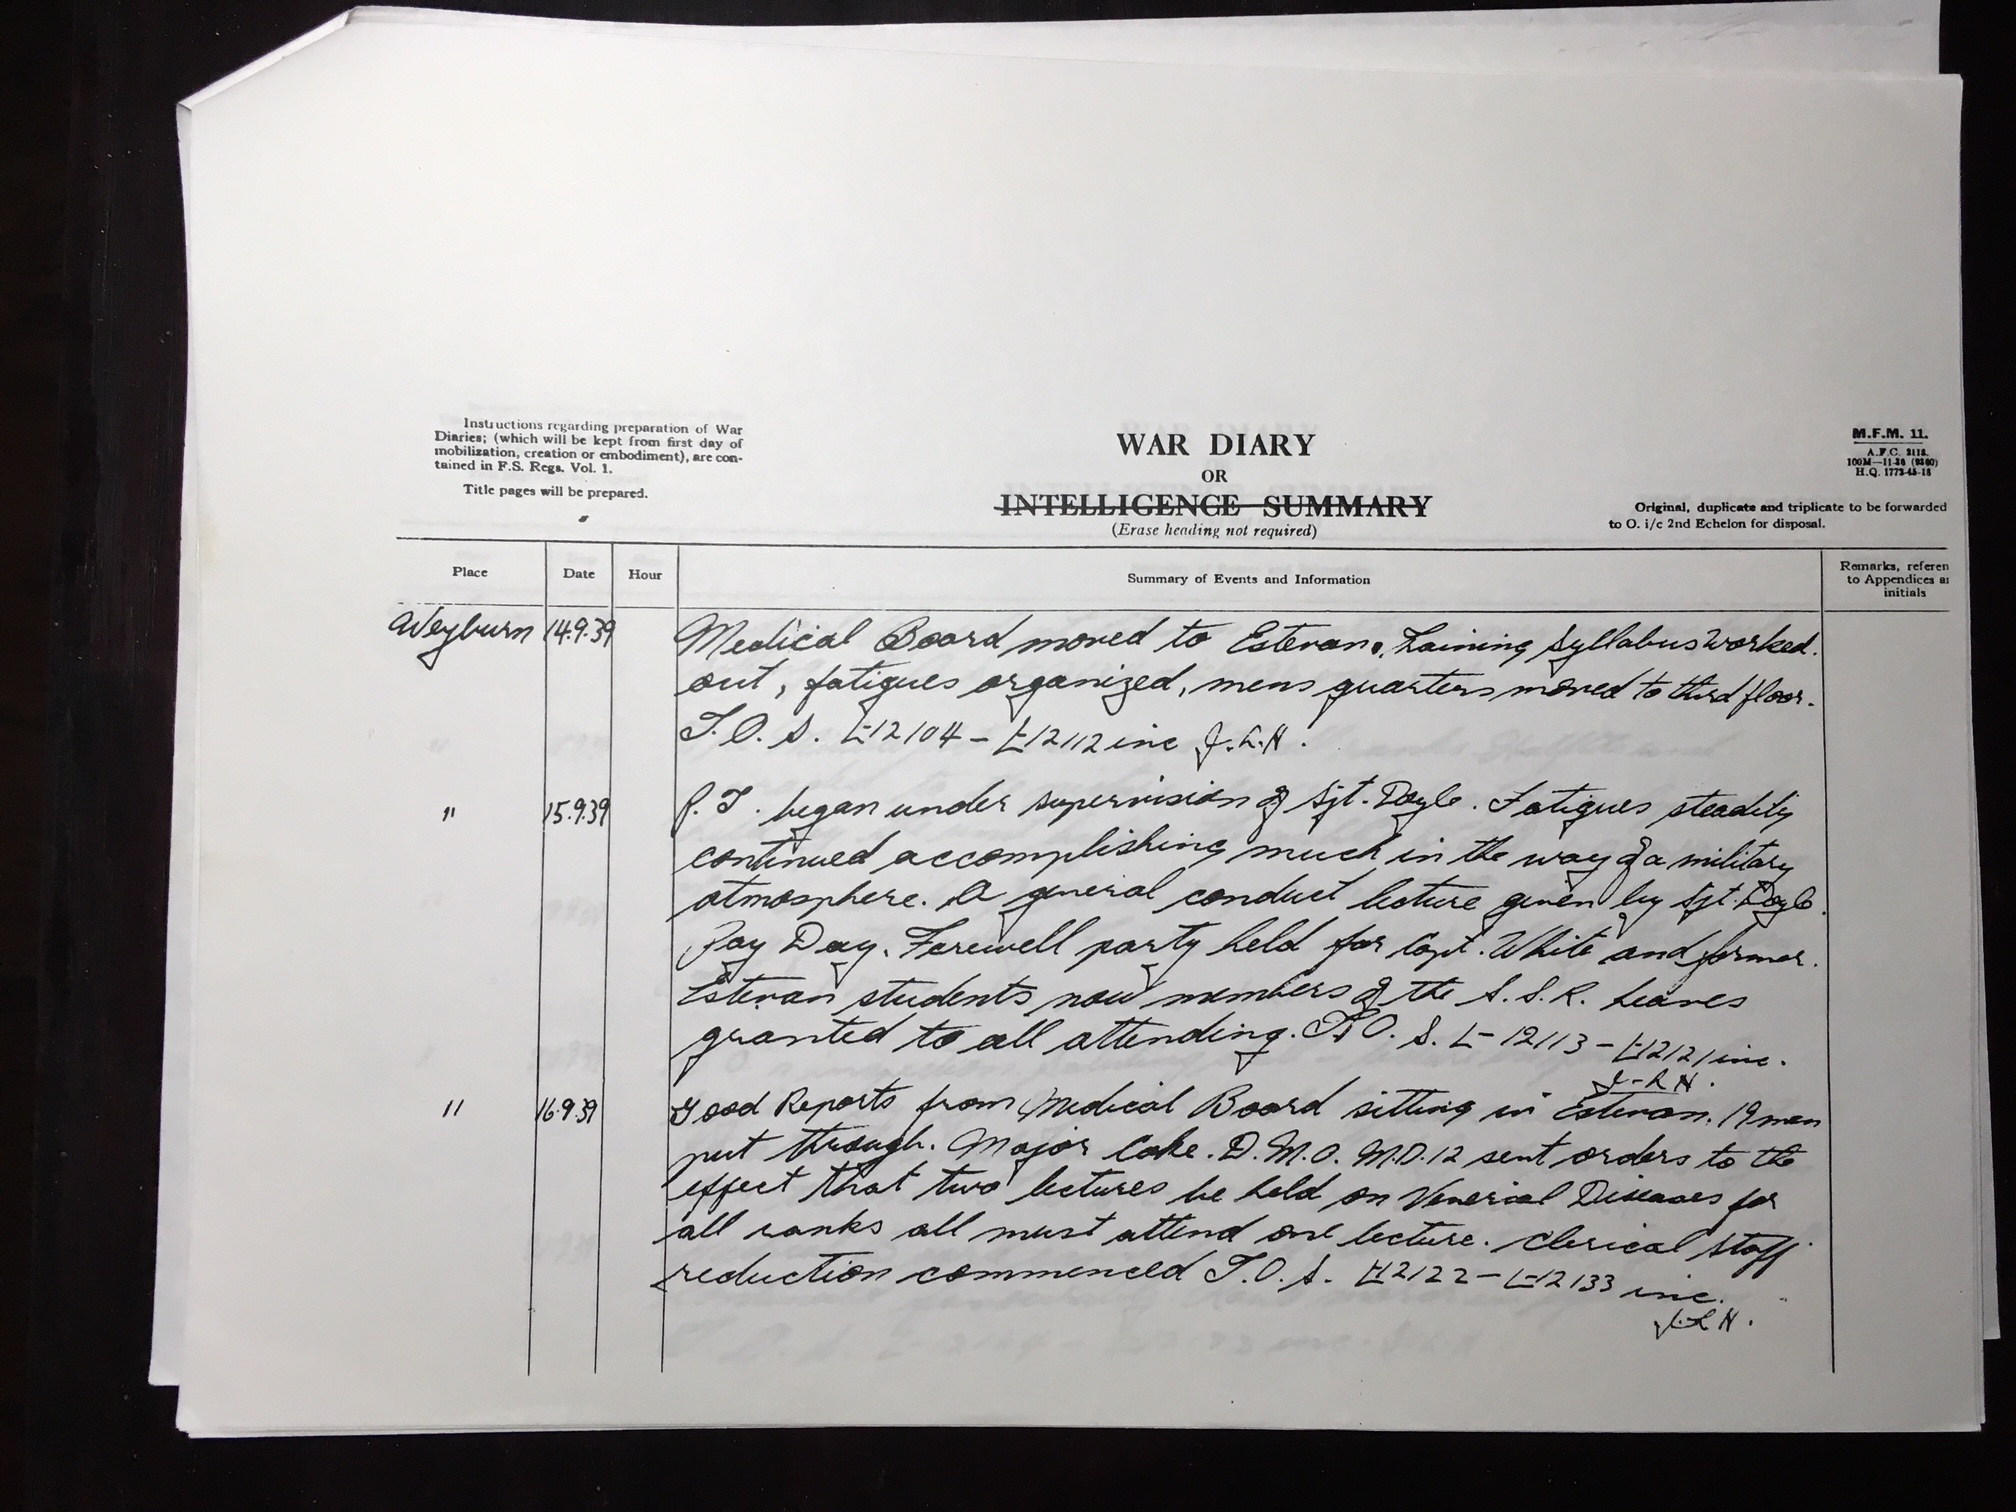 Instructions regarding preparation of War
Diaries; (which will be kept from first day of
mobilization, creation or embodiment), are con-
tained in F.S. Regs. Vol. 1.
Title pages will be prepared.
WAR DIARY
OR
INTELLIGENCE SUMMARY
(Erase heading not required)
M.F.M. 11.
A.F.C. 2118.
100M—11-36 (9360)
H.Q. 1773-45-18
Original, duplicate and triplicate to be forwarded
to O. i/c 2nd Echelon for disposal.
Place Date Hour Summary of Events and Information
Remarks, referen
to Appendices a
initials
Weyburn 14.9.39 Medical Board moved to Estevan. Training Syllabus worked.
out, fatigues organized, mens quarters moved to third floor.
T.O.S. L12104 - L12112 inc J.L.N.
" 15.9.39 P.T. began under supervision of Sjt. Doyle. Fatigues steadily
continued accomplishing much in the way of a military
atmosphere. A general conduct lecture given by Sjt. Doyle.
Pay Day. Farewell party held for Capt. White and former.
Estevan students now members of the S.S.R. Leaves
granted to all attending. T.O.S. L-12113 - L12121 inc.
J.L.N.
" 16.9.39 Good Reports from Medical Board sitting in Estevan. 19 men
put through. Major Coke. D.M.O. M.D.12 sent orders to the
effect that two lectures be held on Venerial Diseases for
all ranks all must attend one lecture. Clerical Staff
reduction commenced T.O.S. L12122 - L-12133 inc.
J.L.N.